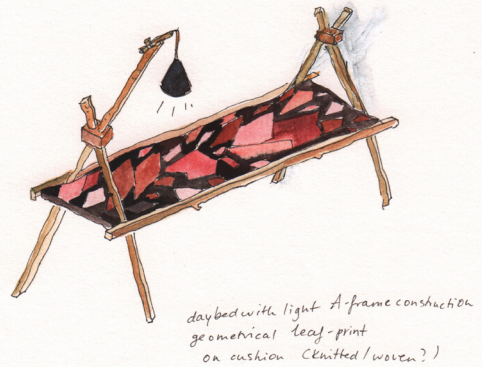 daybed with light A-frame construction
geometrical leaf-print
on cushion (knitted/woven?)